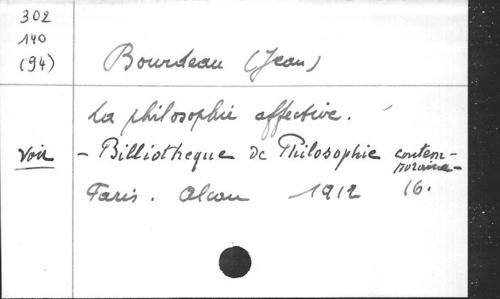 302
140
(94)
Bourdeau (Jean)
La philosophie affective.
Voir - Billiotheque De Philosophie contem-
poraine-
Paris. Alcan 1912 16.